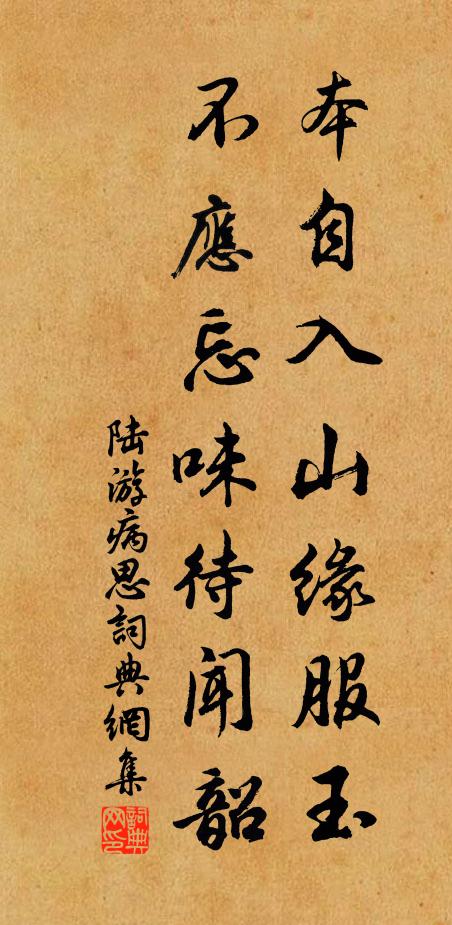 本自入山缘服玉
不應忘味待闻韶
陆游病思詞典網集
詞典网印